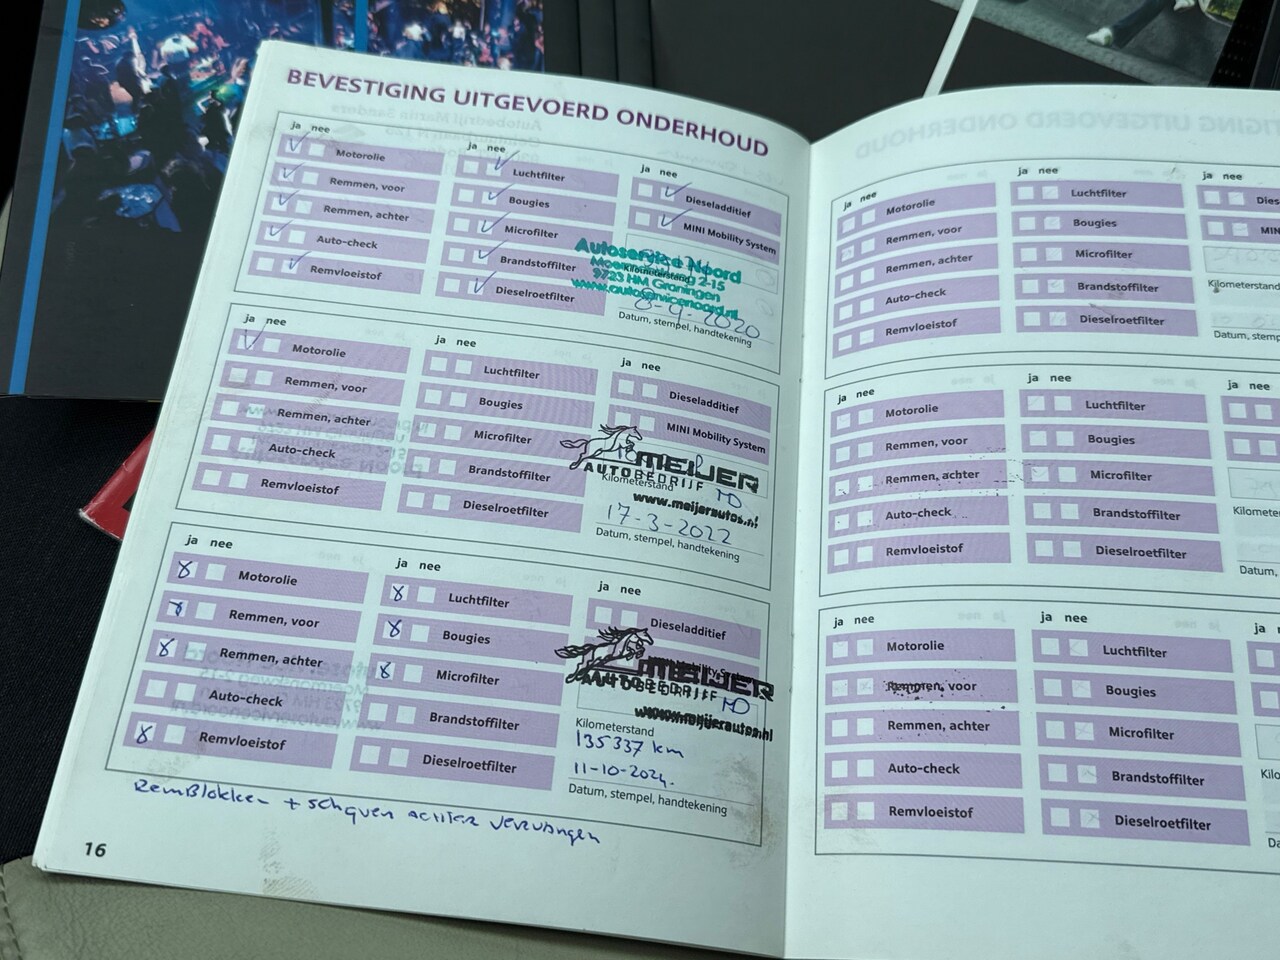 BEVESTIGING UITGEVOERD ONDERHOUD
ja nee
Motorolie
Remmen, voor
Remmen, achter
Auto-check
Remvloeistof
ja nee
Luchtfilter
Bougies
Microfilter
Brandstoffilter
Dieselroetfilter
ja nee
Dieseladditief
MINI Mobility System
Autoservice Noord
Kilometerstand
9723 HM Groningen
www.autoservicenoord.nl
8-9-2020
Datum, stempel, handtekening
ja nee
Motorolie
Remmen, voor
Remmen, achter
Auto-check
Remvloeistof
ja nee
Luchtfilter
Bougies
Microfilter
Brandstoffilter
Dieselroetfilter
ja nee
Dieseladditief
MINI Mobility System
MEIJER
AUTOBEDRIJF
Kilometerstand
www.meijerautos.nl
17-3-2022
Datum, stempel, handtekening
ja nee
Motorolie
Remmen, voor
Remmen, achter
Auto-check
Remvloeistof
ja nee
Luchtfilter
Bougies
Microfilter
Brandstoffilter
Dieselroetfilter
ja nee
Dieseladditief
MEIJER
AUTOBEDRIJF
www.meijerautos.nl
Kilometerstand
135337 km
11-10-2024.
Datum, stempel, handtekening
RemBlokken + schijven achter vervangen
16
ja nee
Motorolie
Remmen, voor
Remmen, achter
Auto-check
Remvloeistof
ja nee
Luchtfilter
Bougies
Microfilter
Brandstoffilter
Dieselroetfilter
ja nee
Dies
MIN
Kilometerstand
Datum, stemp
ja nee
Motorolie
Remmen, voor
Remmen, achter
Auto-check
Remvloeistof
ja nee
Luchtfilter
Bougies
Microfilter
Brandstoffilter
Dieselroetfilter
ja nee
Kilomete
Datum,
ja nee
Motorolie
Remmen, voor
Remmen, achter
Auto-check
Remvloeistof
ja nee
Luchtfilter
Bougies
Microfilter
Brandstoffilter
Dieselroetfilter
ja
Kilo
Da